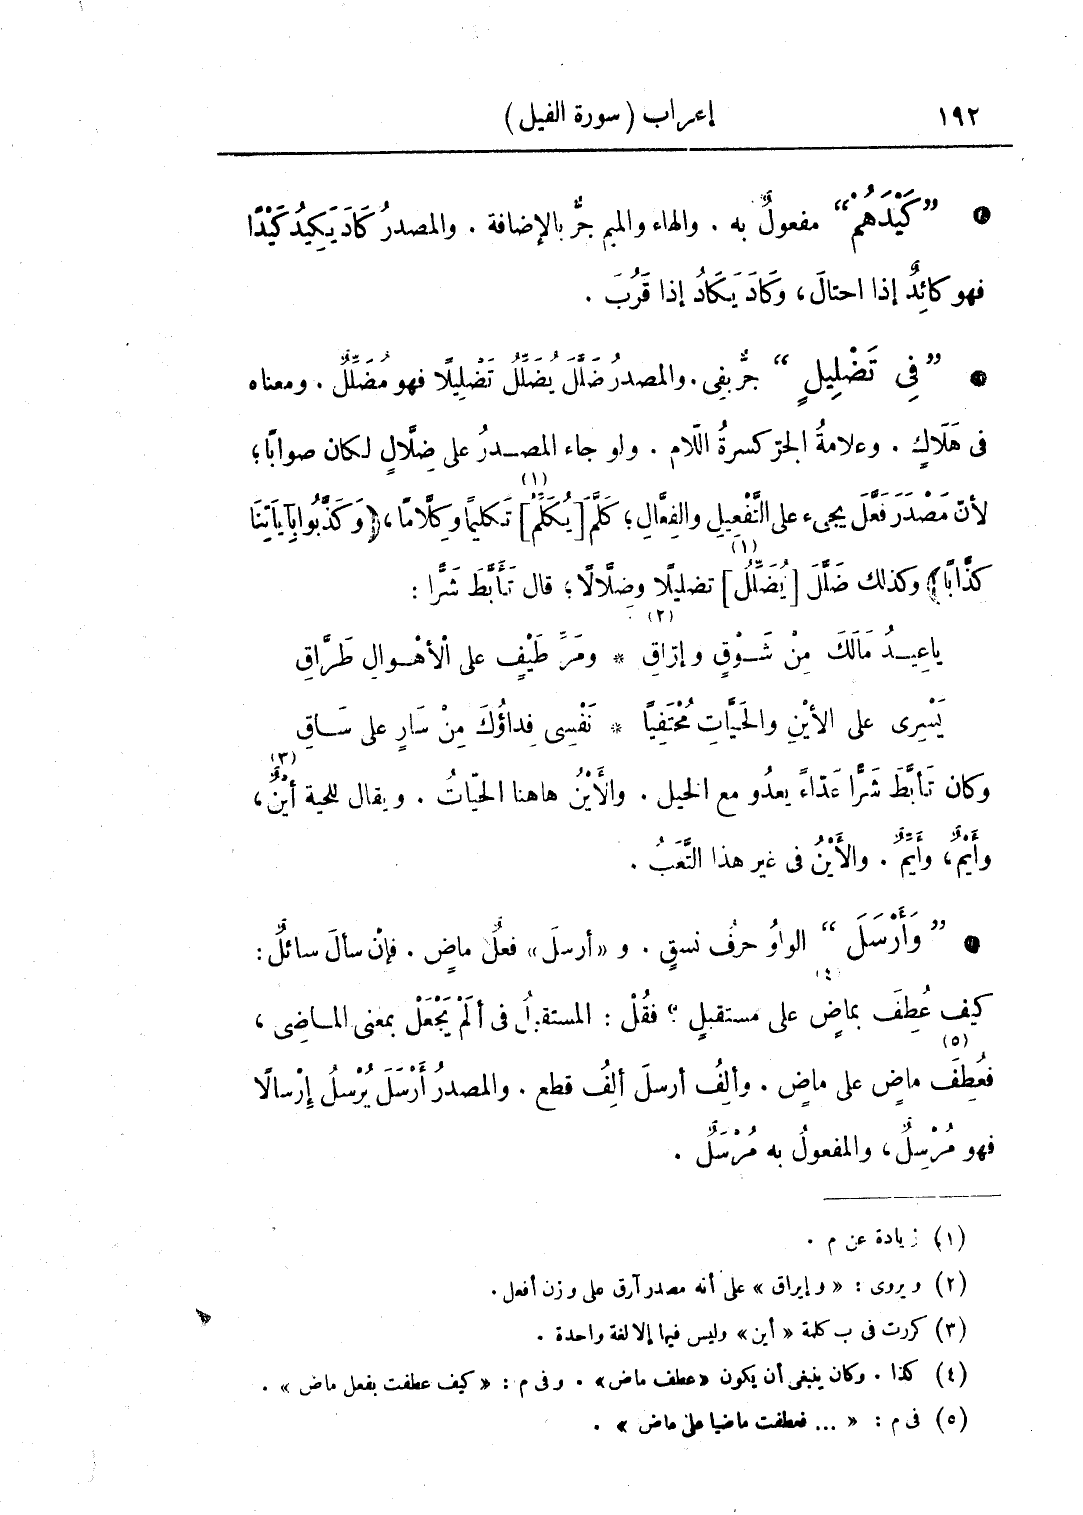 ١٩٢ إعراب (سورة الفيل)
● ”كَيْدَهُمْ“ مفعولٌ به . والهاء والميم جرٌّ بالإضافة . والمصدرُ كَادَ يَكِيدُ كَيْدًا
فهو كائِدٌ إذا احتالَ، وكَادَ يَكَادُ إذا قَرُبَ .
● ”فِى تَضْلِيلٍ“ جرٌّ بفِى. والمصدرُ ضَلَّلَ يُضَلِّلُ تَضْلِيلًا فهو مُضَلِّلٌ . ومعناه
فى هَلَاكٍ . وعلامةُ الجرّ كسرةُ اللّام . ولو جاء المصدرُ على ضِلَّالٍ لكان صوابًا؛
لأنّ مَصْدَرَ فَعَّلَ يجىء على التَّفْعِيلِ والفِعَّالِ؛ كَلَّمَ [يُكَلِّمُ](١) تَكليمًا وكِلَّامًا، ﴿وَكَذَّبُوا بِآيَاتِنَا
كِذَّابًا﴾ وكذلك ضَلَّلَ [يُضَلِّلُ](١) تضليلًا وضِلَّالًا؛ قال تَأَبَّطَ شَرًّا :
ياعِيدُ مَالَكَ مِنْ شَوْقٍ وإرَاقِ(٢) * ومَرِّ طَيْفٍ على الأهْوالِ طَرَّاقِ
يَسْرِى على الأيْنِ والحَيَّاتِ مُحْتَفِيًا * نَفْسِى فِداؤُكَ مِنْ سَارٍ على سَاقِ
وكان تَأَبَّطَ شَرًّا عَدّاءً يعدُو مع الخيل . والأَيْنُ هاهنا الحيّاتُ . ويقال للحية أيْنٌ(٣)،
وأَيْمٌ، وأَيِّمٌ . والأَيْنُ فى غير هذا التَّعَبُ .
● ”وَأَرْسَلَ“ الواوُ حرفُ نسقٍ . و «أرسلَ» فعلٌ ماضٍ . فإنْ سألَ سائلٌ :
كيف عُطِفَ بماضٍ(٤) على مستقبلٍ ؟ فقُلْ : المستقبلُ فى أَلَمْ يَجْعَلْ بمعنى الماضِى ،
فعُطِفَ(٥) ماضٍ على ماضٍ . وألِفُ أرسلَ ألِفُ قطع . والمصدرُ أَرْسَلَ يُرْسِلُ إِرْسالًا
فهو مُرْسِلٌ، والمفعولُ به مُرْسَلٌ .
(١) زيادة عن م .
(٢) ويروى : «وإيراق» على أنه مصدر آرق على وزن أفعل .
(٣) كررت فى ب كلمة «أين» وليس فيها إلا لغة واحدة .
(٤) كذا . وكان ينبغى أن يكون «عطف ماض» . وفى م : «كيف عطفت بفعل ماض» .
(٥) فى م : «... فعطفت ماضيا على ماض» .